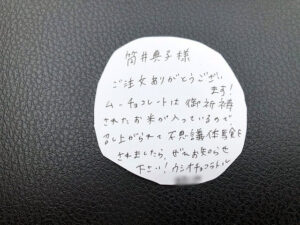 筒井典子様
ご注文ありがとうござい
ます!
ムーチョコレートは御祈祷
されたお米が入っているので
召し上がられて不思議体験を
されましたら、ぜひお知らせ
下さい!ウシオチョコラトル